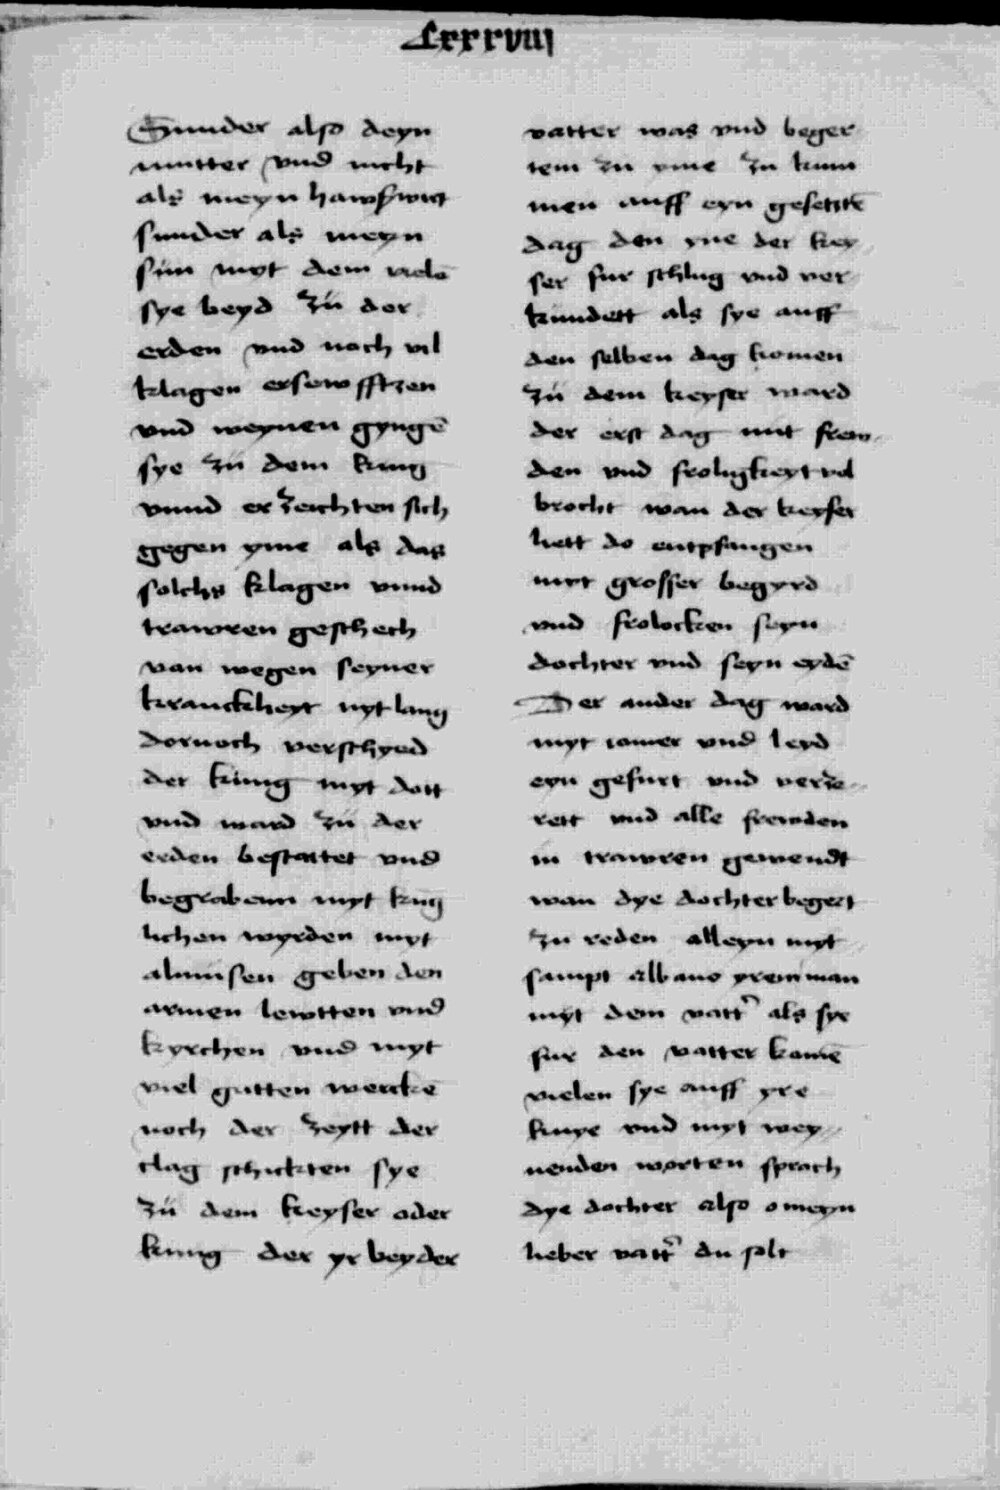 Lxxxxviii
Sunder also deyn
mutter vnd nicht
als meyn hawswirt
sunder als meyn
sün myt dem vielē
sye beyd zü der
erden vnd noch vil
klagen ersewfftzen
vnd weynen gyngē
sye zü dem kung
vnnd er zeichten sich
gegen yme als das
solchs klagen vnnd
trawren geschech
van wegen seyner
kranckheyt nyt lang
dornoch verschyed
der küng myt dott
vnd ward zü der
erden bestattet vnd
begrabenn myt kūg
lichen wyrden myt
almüsen geben den
armen lewtten vnd
kyrchen vnd myt
viel gutten werckē
noch der zeytt der
clag schickten sye
zü dem keyser oder
kung der yr beyder
vatter was vnd beger
tem zu yme zu kum
men auff eyn gesetztē
dag den yne der key
ser fur schlug vnd ver
kündett als sye auff
den selben dag komen
zü dem keyser ward
der erst dag mit frew
den vnd froligkeyt vol
brocht wan der keyser
hett do entpfangen
myt grosser begyrd
vnd frolocken seyn
dochter vnd seyn eydē
Der ander dag ward
myt iomer vnd leyd
eyn gefurt vnd verze
rett vnd alle frewden
in trawren gewendt
wan dye dochter begert
zu reden alleyn myt
sampt albano yrem man
myt dem vatt' als sye
fur den vatter komē
vielen sye auff yre
knye vnd myt wey
nenden worten sprach
dye dochter also o meyn
lieber vatt' du solt